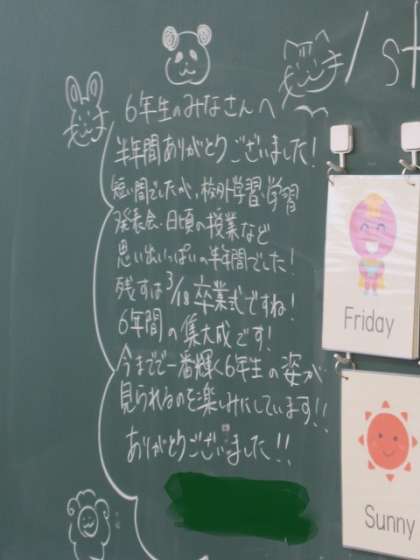 6年生のみなさんへ
半年間ありがとうございました!
短い間でしたが、校外学習、学習
発表会、日頃の授業など
思い出いっぱいの半年間でした!
残すは3/18 卒業式ですね!
6年間の集大成です!
今までで一番輝く6年生の姿が
見られるのを楽しみにしています!!
ありがとうございました!!
Friday
Sunny